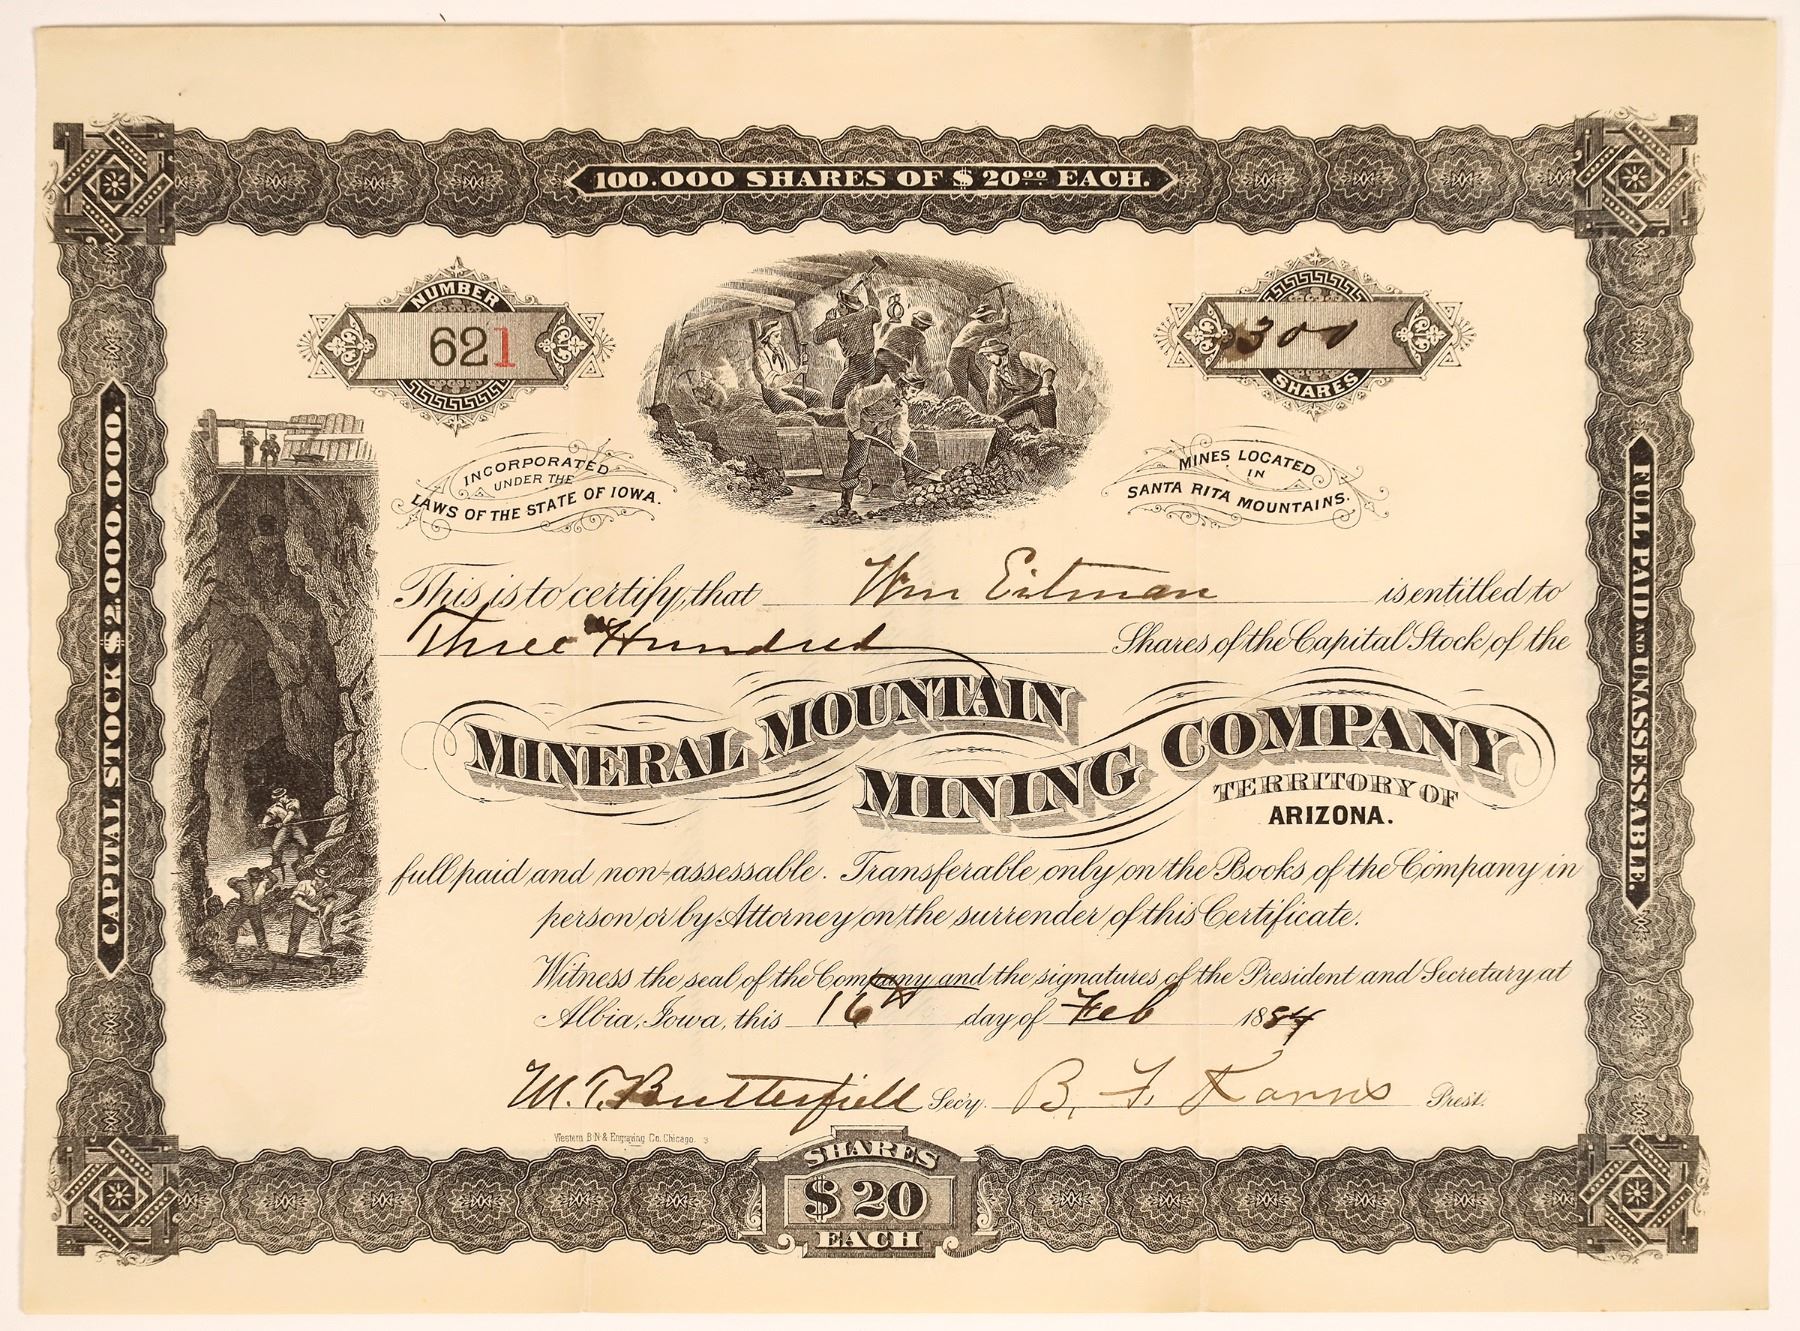 100.000 SHARES OF $20.00 EACH.
NUMBER
621
300
SHARES
INCORPORATED
UNDER THE
LAWS OF THE STATE OF IOWA.
MINES LOCATED
IN
SANTA RITA MOUNTAINS.
CAPITAL STOCK $2.000.000.
FULL PAID AND UNASSESSABLE.
This is to certify, that Wm Eitman is entitled to
Three Hundred Shares of the Capital Stock of the
MINERAL MOUNTAIN
MINING COMPANY
TERRITORY OF
ARIZONA.
full paid and non-assessable. Transferable only on the Books of the Company in
person or by Attorney on the surrender of this Certificate.
Witness the seal of the Company and the signatures of the President and Secretary at
Albia, Iowa, this 16th day of Feb 1884
M. T. Butterfield Secy. B. F. Pres't.
Western B.N. & Engraving Co. Chicago. 3
SHARES
$20
EACH